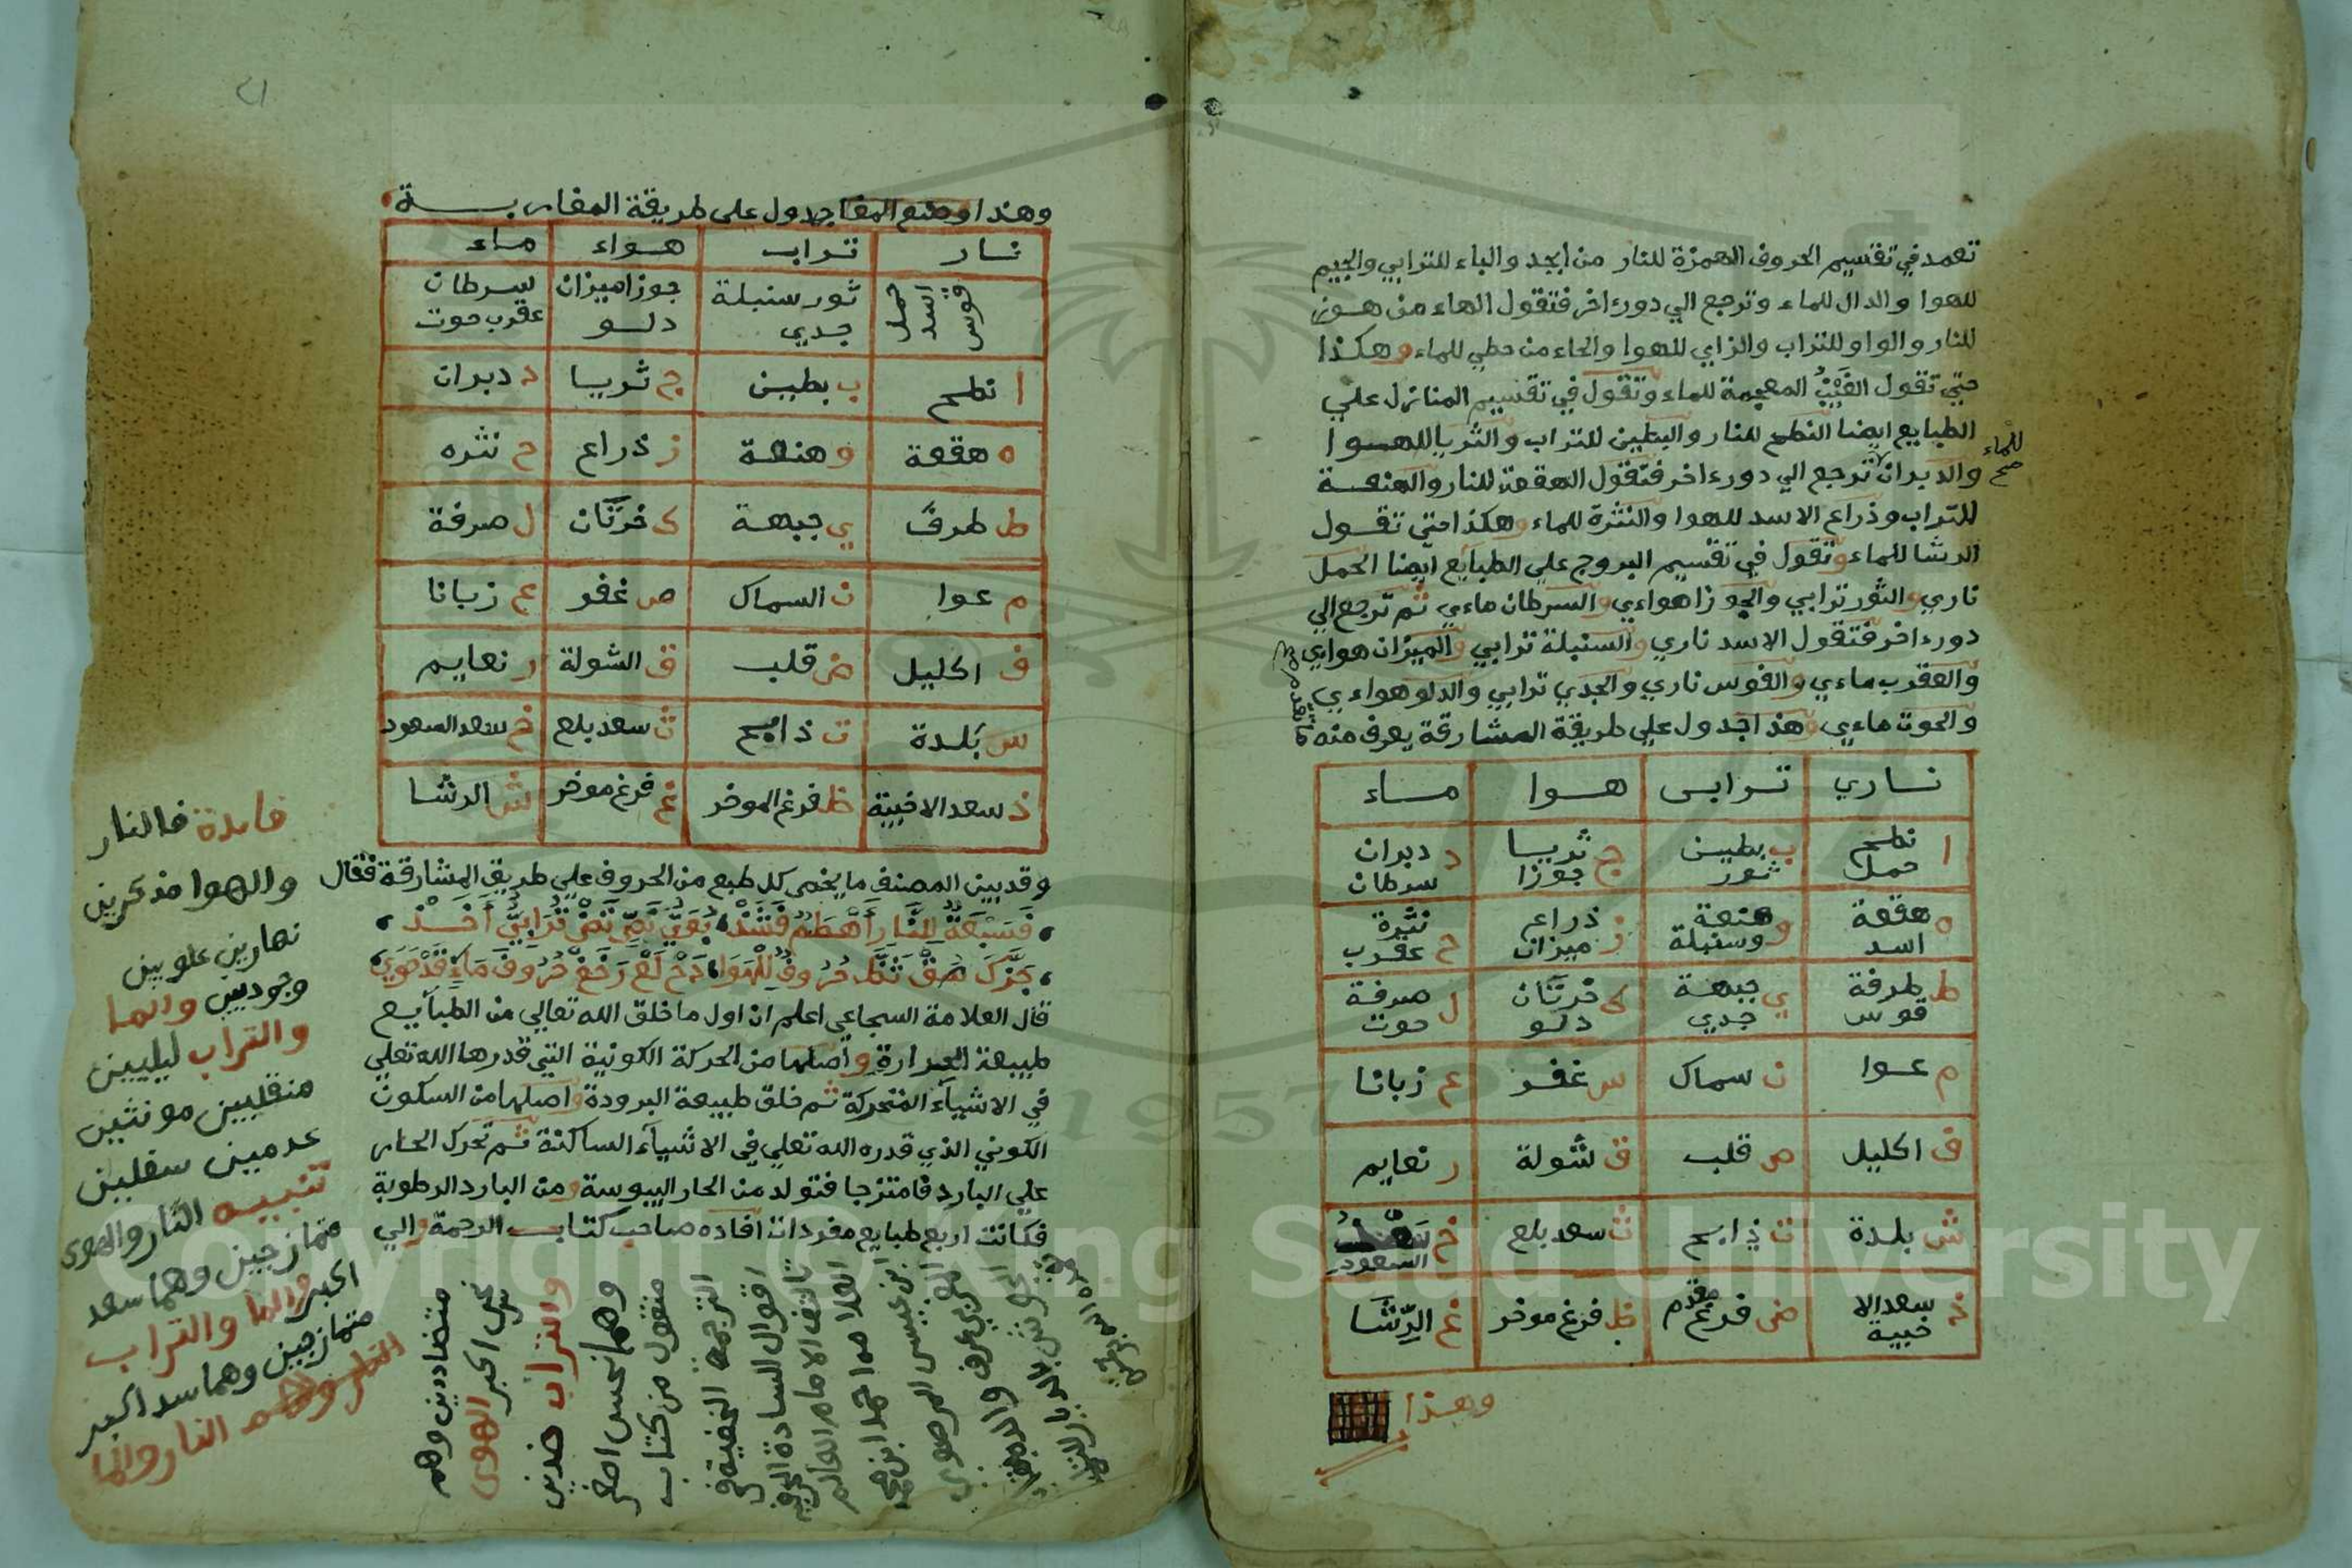 تعمد في تقسيم الحروف الهمزة للنار من ابجد والباء للترابي والجيم
للهوا والدال للماء وترجع الي دورء اخر فتقول الهاء من هوز
للنار والواو للتراب والزاي للهوا والحاء من حطي للماء وهكذا
حتي تقول الغين المعجمة للماء وتقول في تقسيم المنازل علي
الطبايع ايضا النطح للنار والبطين للتراب والثريا للهوا
والدبران ترجع الي دورء اخر فتقول الهقعة للنار والهنعة
للماء صح
للتراب وذراع الاسد للهوا والنثرة للماء وهكذا حتي تقول
الرشا للماء وتقول في تقسيم البروج علي الطبايع ايضا الحمل
ناري والثور ترابي والجوزا هواءي والسرطان ماءي ثم ترجع الي
دورء اخر فتقول الاسد ناري والسنبلة ترابي والميزان هواءي
والعقرب ماءي والقوس ناري والجدي ترابي والدلو هواءي
والحوت ماءي وهذا جدول علي طريقة المشارقة يعرف منه
ناري ترابى هوا ماء
ا نطح حمل ب بطين ثور ج ثريا جوزا د دبران سرطان
ه هقعة اسد و هنعة وسنبلة ز ذراع ميزان ح نثرة عقرب
ط طرفة قوس ي جبهة جدي ك خرتان دلو ل صرفة حوت
م عوا ن سماك س غفر ع زبانا
ف اكليل ص قلب ق شولة ر نعايم
ش بلدة ت ذابح ث سعد بلع خ سعد السعود
ذ سعد الاخبية ض فرغ مقدم ظ فرغ موخر غ الرشا
وهذا
٢١
وهذا وضع المفا جدول على طريقة المغاربة
نار تراب هواء ماء
حمل اسد قوس ثور سنبلة جدي جوزا ميزان دلو سرطان عقرب حوت
ا نطح ب بطين ج ثريا د دبران
ه هقعة و هنعة ز ذراع ح نثره
ط طرف ي جبهة ك خرتان ل صرفة
م عوا ن السماك ص غفر ع زبانا
ف اكليل ض قلب ق الشولة ر نعايم
س بلدة ت ذابح ث سعد بلع خ سعد السعود
ذ سعد الاخبية ظ فرغ الموخر غ فرغ موخر ش الرشا
وقد بين المصنف ما يخص كل طبع من الحروف علي طريق المشارقة فقال
فسبعة للنار اهطم فشذ
حروف للهوا دحلع رخغ حروف ماء قد حوي
قال العلامة السجاعي اعلم ان اول ما خلق الله تعالي من الطبايع
طبيعة الحرارة واصلها من الحركة الكونية التي قدرها الله تعلي
في الاشياء المتحركة ثم خلق طبيعة البرودة واصلها من السكون
الكوني الذي قدره الله تعلي في الاشياء الساكنة ثم تحرك الحار
علي البارد فامتزجا فتولد من الحار اليبوسة ومن البارد الرطوبة
فكانت اربع طبايع مفردات افاده صاحب كتاب الرحمة والي
فايدة فالنار
والهوا مذكرين
نهارين علوين
وجوديين والما
والتراب ليليين
منقلبين مونثين
عدمين سفلين
تنبيه النار والهوى
متمازجين وهما سعد
اكبر والما والتراب
متمازجين وهما سد اكبر
النار والما
متضاددين وهم
نحس اكبر الهوى
والتراب ضدين
وهما نحس اصغر
منقول من كتاب
الترجمة
اقوال السادة
تاليف الامام العالم
العلامه احمد ابن محمد
Copyright © King Saud University
1957